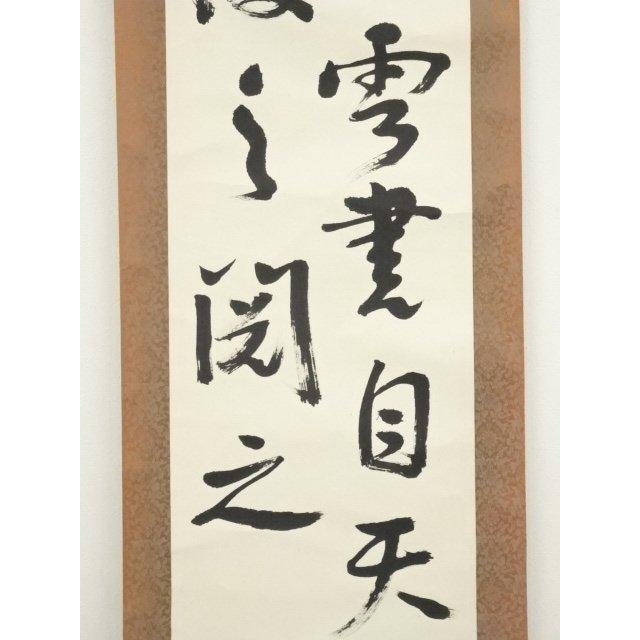 雲書自天
之閲之